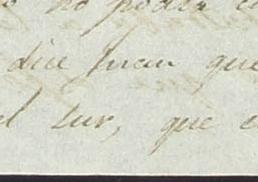 no podia
dice Juan que
el sur, que